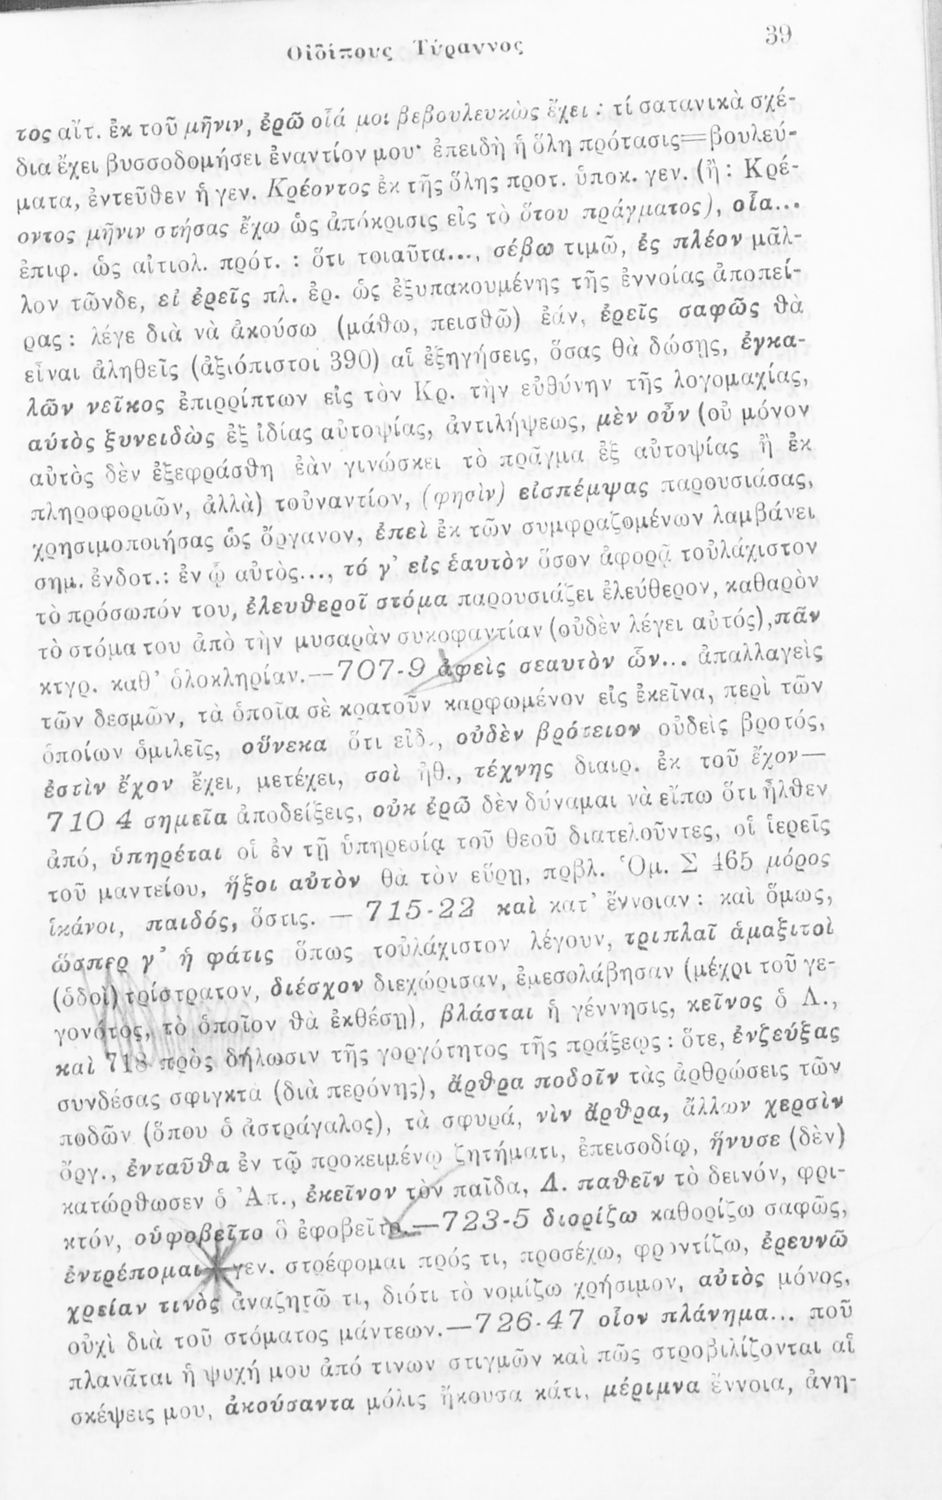 Οἰδίπους Τύραννος
39
τος αἴτ. ἐκ τοῦ μῆνιν, ἐρῶ οἷά μοι βεβουλευκὼς ἔχει : τί σατανικὰ σχέ-
δια ἔχει βυσσοδομήσει ἐναντίον μου· ἐπειδὴ ἡ ὅλη πρότασις=βουλεύ-
ματα, ἐντεῦθεν ἡ γεν. Κρέοντος ἐκ τῆς ὅλης προτ. ὑποκ. γεν. (ἢ : Κρέ-
οντος μῆνιν στήσας ἔχω ὡς ἀπόκρισις εἰς τὸ ὅτου πράγματος), οἷα...
ἐπιφ. ὡς αἰτιολ. πρότ. : ὅτι τοιαῦτα..., σέβω τιμῶ, ἐς πλέον μᾶλ-
λον τῶνδε, εἰ ἐρεῖς πλ. ἐρ. ὡς ἐξυπακουμένης τῆς ἐννοίας ἀποπεί-
ρας : λέγε διὰ νὰ ἀκούσω (μάθω, πεισθῶ) ἐάν, ἐρεῖς σαφῶς θὰ
εἶναι ἀληθεῖς (ἀξιόπιστοι 390) αἱ ἐξηγήσεις, ὅσας θὰ δώσῃς, ἐγκα-
λῶν νεῖκος ἐπιρρίπτων εἰς τὸν Κρ. τὴν εὐθύνην τῆς λογομαχίας,
αὐτὸς ξυνειδὼς ἐξ ἰδίας αὐτοψίας, ἀντιλήψεως, μὲν οὖν (οὐ μόνον
αὐτὸς δὲν ἐξεφράσθη ἐὰν γινώσκει τὸ πρᾶγμα ἐξ αὐτοψίας ἢ ἐκ
πληροφοριῶν, ἀλλὰ) τοὐναντίον, (φησὶν) εἰσπέμψας παρουσιάσας,
χρησιμοποιήσας ὡς ὄργανον, ἐπεὶ ἐκ τῶν συμφραζομένων λαμβάνει
σημ. ἐνδοτ.: ἐν ᾧ αὐτὸς..., τό γ' εἰς ἑαυτὸν ὅσον ἀφορᾷ τοὐλάχιστον
τὸ πρόσωπόν του, ἐλευθεροῖ στόμα παρουσιάζει ἐλεύθερον, καθαρὸν
τὸ στόμα του ἀπὸ τὴν μυσαρὰν συκοφαντίαν (οὐδὲν λέγει αὐτός), πᾶν
κτγρ. καθ' ὁλοκληρίαν.—707-9 ἀφεὶς σεαυτὸν ὧν... ἀπαλλαγεὶς
τῶν δεσμῶν, τὰ ὁποῖα σὲ κρατοῦν καρφωμένον εἰς ἐκεῖνα, περὶ τῶν
ὁποίων ὁμιλεῖς, οὕνεκα ὅτι εἰδ., οὐδὲν βρότειον οὐδεὶς βροτός,
ἐστὶν ἔχον ἔχει, μετέχει, σοὶ ἠθ., τέχνης διαιρ. ἐκ τοῦ ἔχον—
710 4 σημεῖα ἀποδείξεις, οὐκ ἐρῶ δὲν δύναμαι νὰ εἴπω ὅτι ἦλθεν
ἀπό, ὑπηρέται οἱ ἐν τῇ ὑπηρεσίᾳ τοῦ θεοῦ διατελοῦντες, οἱ ἱερεῖς
τοῦ μαντείου, ἥξοι αὐτὸν θὰ τὸν εὕρῃ, πρβλ. Ὁμ. Σ 465 μόρος
ἱκάνοι, παιδός, ὅστις. — 715-22 καὶ κατ' ἔννοιαν : καὶ ὅμως,
ὥσπερ γ' ἡ φάτις ὅπως τοὐλάχιστον λέγουν, τριπλαῖ ἁμαξιτοὶ
(ὁδοὶ) τρίστρατον, διέσχον διεχώρισαν, ἐμεσολάβησαν (μέχρι τοῦ γε-
γονότος, τὸ ὁποῖον θὰ ἐκθέσῃ), βλάσται ἡ γέννησις, κεῖνος ὁ Λ.,
καὶ 718 πρὸς δήλωσιν τῆς γοργότητος τῆς πράξεως : ὅτε, ἐνζεύξας
συνδέσας σφιγκτὰ (διὰ περόνης), ἄρθρα ποδοῖν τὰς ἀρθρώσεις τῶν
ποδῶν (ὅπου ὁ ἀστράγαλος), τὰ σφυρά, νὶν ἄρθρα, ἄλλων χερσὶν
ὀργ., ἐνταῦθα ἐν τῷ προκειμένῳ ζητήματι, ἐπεισοδίῳ, ἤνυσε (δὲν)
κατώρθωσεν ὁ Ἀπ., ἐκεῖνον τὸν παῖδα, Λ. παθεῖν τὸ δεινόν, φρι-
κτόν, οὑφοβεῖτο ὃ ἐφοβεῖτο.—723-5 διορίζω καθορίζω σαφῶς,
ἐντρέπομαι γεν. στρέφομαι πρός τι, προσέχω, φροντίζω, ἐρευνῶ
χρείαν τινὸς ἀναζητῶ τι, διότι τὸ νομίζω χρήσιμον, αὐτὸς μόνος,
οὐχὶ διὰ τοῦ στόματος μάντεων.—726-47 οἷον πλάνημα... ποῦ
πλανᾶται ἡ ψυχή μου ἀπό τινων στιγμῶν καὶ πῶς στροβιλίζονται αἱ
σκέψεις μου, ἀκούσαντα μόλις ἤκουσα κάτι, μέριμνα ἔννοια, ἀνη-